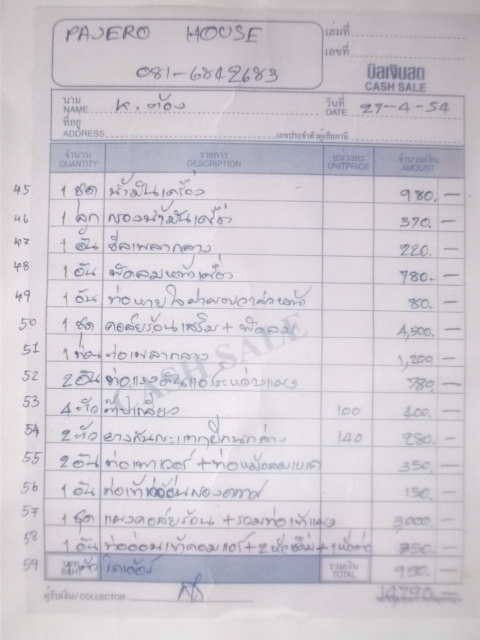 PAJERO HOUSE
081-6842683
เล่มที่
เลขที่
บิลเงินสด
CASH SALE
นาม NAME K. ต้อง วันที่ DATE 27-4-54
ที่อยู่ ADDRESS เลขประจำตัวผู้เสียภาษี
จำนวน QUANTITY รายการ DESCRIPTION หน่วยละ UNITPRICE จำนวนเงิน AMOUNT
45 1 ชุด น้ำมันเครื่อง 980. —
46 1 ลูก กรองน้ำมันเครื่อง 370. —
47 1 อัน ซีลเพลากลาง 220. —
48 1 อัน พัดลมหน้าเครื่อง 780. —
49 1 อัน ท่อหายใจฝาครอบวาล์วหน้า 80. —
50 1 ชุด คอล์ยร้อนเสริม + พัดลม 4,500. —
51 1 ท่อน ต่อเพลากลาง 1,200 —
52 2 อัน 780. —
53 4 ตัว 100 400. —
54 2 ตัว ยางกันกระแทกปีกนกล่าง 140 280. —
55 2 อัน ท่อเพาเวอร์ + ท่อหม้อลมเบรค 350. —
56 1 อัน 150. —
57 1 ชุด แผงคอล์ยร้อน + รวมท่อเข้าแผง 3,000. —
58 1 อัน ท่ออ่อนเข้าคอมแอร์ + 2 750. —
59 รวมเงิน TOTAL 950. —
ผู้รับเงิน/COLLECTOR 14790. —
CASH SALE